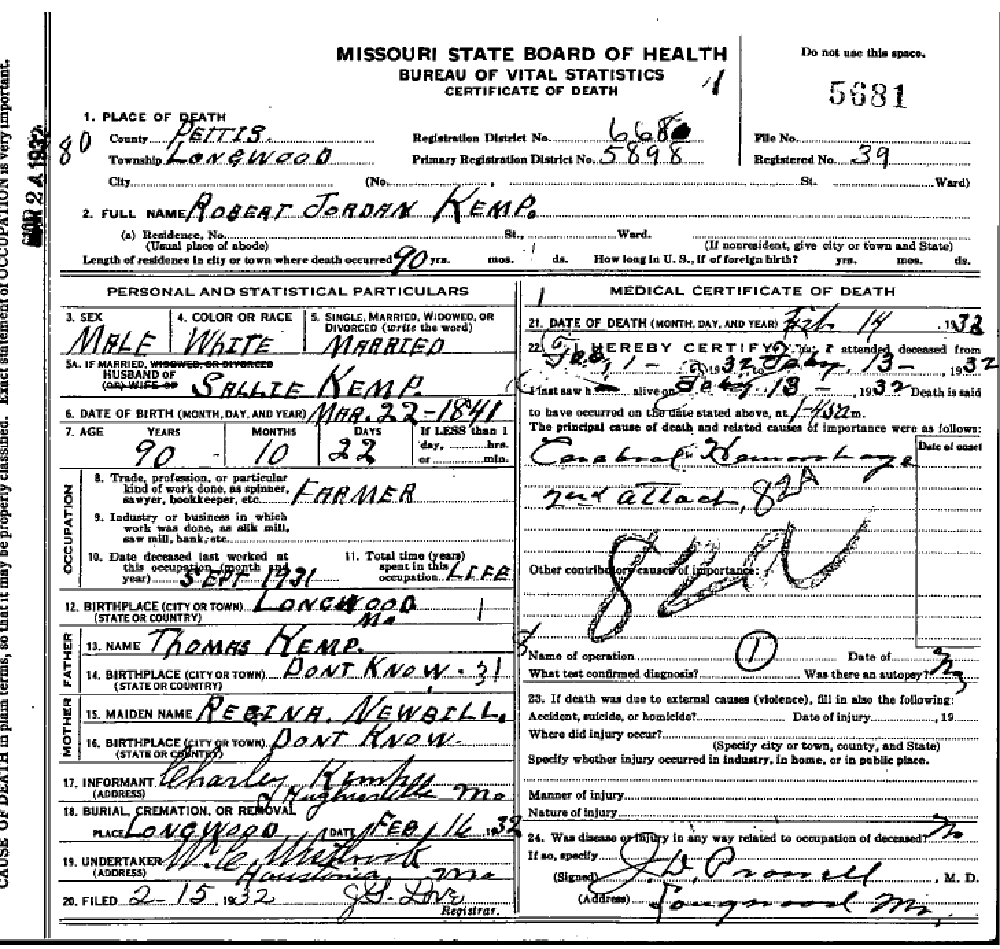 MISSOURI STATE BOARD OF HEALTH
BUREAU OF VITAL STATISTICS
CERTIFICATE OF DEATH
Do not use this space.
5681
1. PLACE OF DEATH
County PETTIS. Registration District No. 668 File No.
Township LONGWOOD Primary Registration District No. 5898 Registered No. 39
City (No. St. Ward)
80
2. FULL NAME ROBERT JORDAN KEMP.
(a) Residence, No. St., Ward.
(Usual place of abode) (If nonresident, give city or town and State)
Length of residence in city or town where death occurred 90 yrs. mos. ds. How long in U. S., if of foreign birth? yrs. mos. ds.
PERSONAL AND STATISTICAL PARTICULARS
3. SEX 4. COLOR OR RACE 5. SINGLE, MARRIED, WIDOWED, OR DIVORCED (write the word)
MALE WHITE MARRIED
5A. IF MARRIED, WIDOWED, OR DIVORCED
HUSBAND OF
(OR) WIFE OF SALLIE KEMP.
6. DATE OF BIRTH (MONTH, DAY, AND YEAR) MAR. 22-1841
7. AGE YEARS MONTHS DAYS If LESS than 1
day, hrs.
or min.
90 10 22
OCCUPATION
8. Trade, profession, or particular
kind of work done, as spinner,
sawyer, bookkeeper, etc. FARMER
9. Industry or business in which
work was done, as silk mill,
saw mill, bank, etc.
10. Date deceased last worked at
this occupation (month and
year) SEPT 1931
11. Total time (years)
spent in this
occupation LIFE
12. BIRTHPLACE (CITY OR TOWN) LONGWOOD
(STATE OR COUNTRY) Mo
FATHER
13. NAME THOMAS KEMP.
14. BIRTHPLACE (CITY OR TOWN) DONT KNOW - 31
(STATE OR COUNTRY)
MOTHER
15. MAIDEN NAME REGINA. NEWBILL.
16. BIRTHPLACE (CITY OR TOWN) DONT KNOW
(STATE OR COUNTRY)
17. INFORMANT Charley Kemp
(ADDRESS) Hughesville Mo
18. BURIAL, CREMATION, OR REMOVAL
PLACE LONGWOOD DATE FEB 16 1932
19. UNDERTAKER W. C.
(ADDRESS) Houstonia, Mo
20. FILED 2-15 1932 J.G. Love
Registrar.
MEDICAL CERTIFICATE OF DEATH
21. DATE OF DEATH (MONTH, DAY, AND YEAR) Feb 14, 1932
22. I HEREBY CERTIFY, That I attended deceased from
Feb, 1 - 1932 Feby, 13 - , 1932
I last saw h alive on Feby. 13 - , 1932 Death is said
to have occurred on the date stated above, at m.
The principal cause of death and related causes of importance were as follows:
Date of onset
Cerebral Hemorrhage
2nd attack, 82A
82A
Other contributory causes of importance:
Name of operation Date of
1
What test confirmed diagnosis? Was there an autopsy? No
23. If death was due to external causes (violence), fill in also the following:
Accident, suicide, or homicide? Date of injury , 19
Where did injury occur?
(Specify city or town, county, and State)
Specify whether injury occurred in industry, in home, or in public place.
Manner of injury
Nature of injury
24. Was disease or injury in any way related to occupation of deceased? No
If so, specify
(Signed) J. D. Prowell, M. D.
(Address) Longwood Mo,
CAUSE OF DEATH in plain terms, so that it may be properly classified. Exact statement of OCCUPATION is very important.